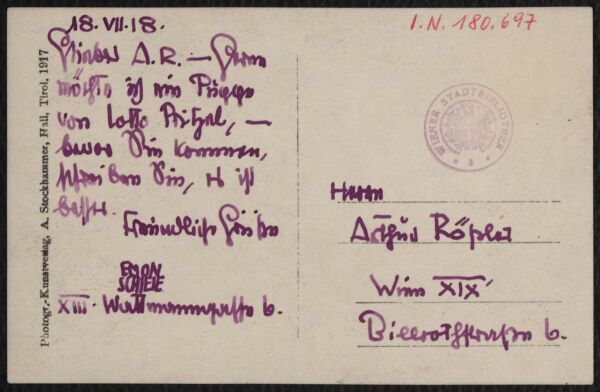 18.VII.18.
I.N. 180.697
Lieber A.R. — Gerne
möchte ich eine Puppe
von Lotte Pritzel, —
bevor Sie kommen,
schreiben Sie, es ist
besser.
Freundliche Grüße
EGON
SCHIELE
XIII. Wattmanngasse 6.
Photogr.-Kunstverlag, A. Stockhammer, Hall, Tirol, 1917
WIENER STADTBIBLIOTHEK
Herrn
Arthur Rößler
Wien XIX
Billrothstraße 6.